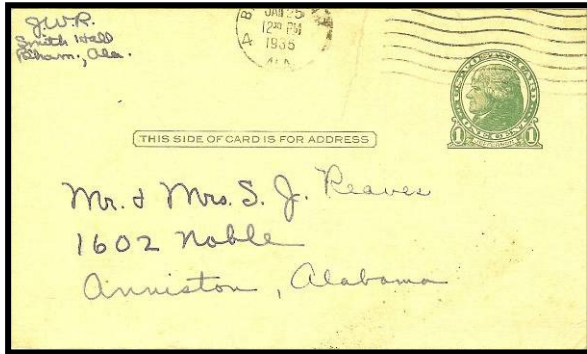 J.W.R.
Smith Hall
Pelham, Ala.
JAN 25
12 PM
1935
ALA
THIS SIDE OF CARD IS FOR ADDRESS
1 1
Mr. & Mrs. S. J. Reaves
1602 Noble
Anniston, Alabama